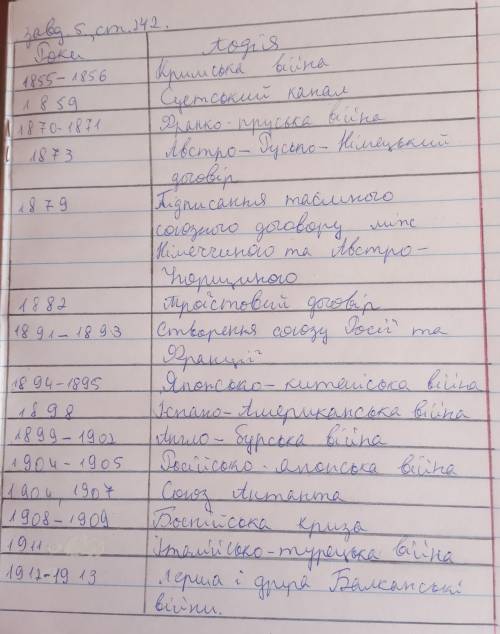 завд 5, ст. 142.
Роки Подія
1855-1856 Кримська війна
1859 Суетський канал
1870-1871 Франко-пруська війна
1873 Австро-Русько-Німецький
договір
1879 Підписання таємного
союзного договору між
Німеччиного та Австро-
Угорщиного
1882 Троїстовий договір
1891-1893 Створення союзу Росії та
Франції
1894-1895 Японсько-китайська війна
1898 Іспано-Американська війна
1899-1902 Англо-бурська війна
1904-1905 Російсько-японська війна
1904, 1907 Союз Антанта
1908-1909 Боснійська криза
1911 Італійсько-турецька війна
1912-1913 Перша і друга Балканські
війни.